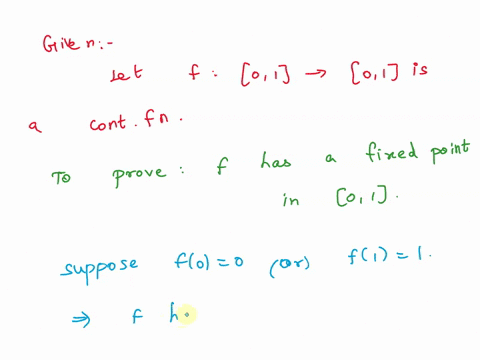 Given:-
Let f : [0,1] → [0,1] is
a cont. fn.
To prove : f has a fixed point
in [0,1].
suppose f(0)=0 (or) f(1)=1.
⇒ f h